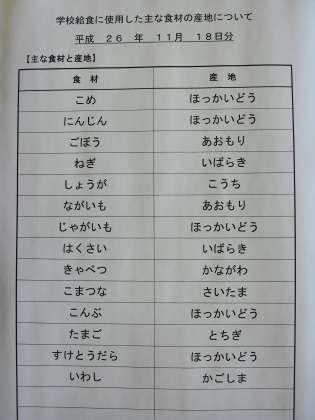 学校給食に使用した主な食材の産地について
平成 26 年 11月 18日分
【主な食材と産地】
食 材 産 地
こめ ほっかいどう
にんじん ほっかいどう
ごぼう あおもり
ねぎ いばらき
しょうが こうち
ながいも あおもり
じゃがいも ほっかいどう
はくさい いばらき
きゃべつ かながわ
こまつな さいたま
こんぶ ほっかいどう
たまご とちぎ
すけとうだら ほっかいどう
いわし かごしま